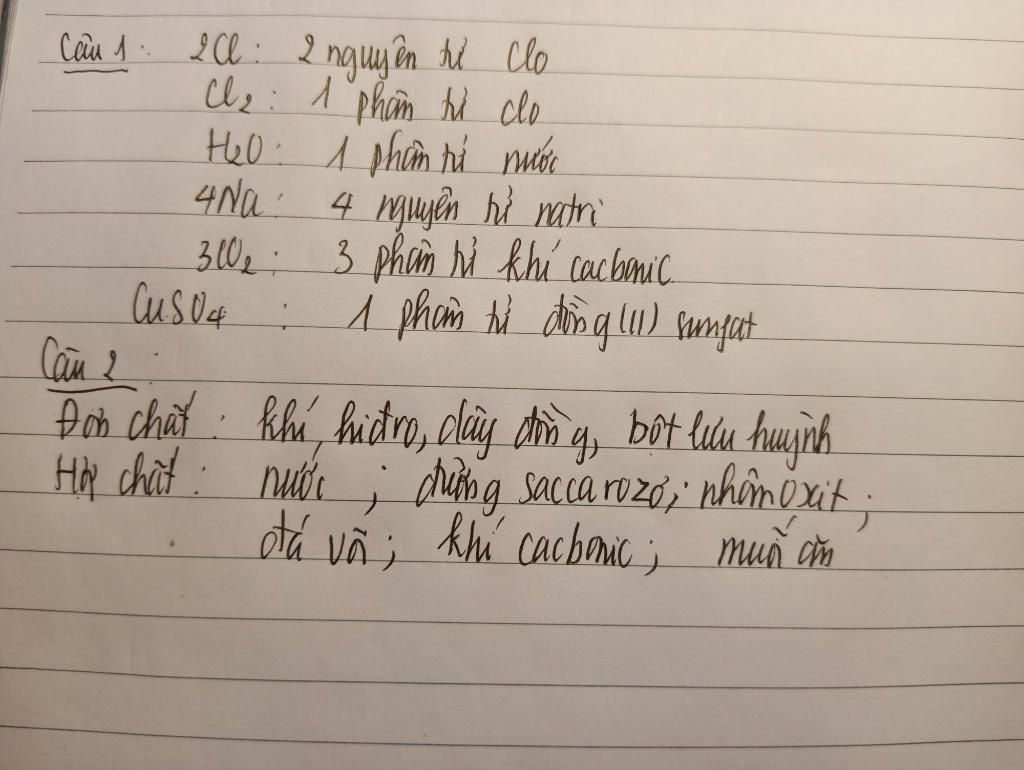 Câu 1: 2Cl: 2 nguyên tử Clo
Cl2: 1 phân tử clo
H2O: 1 phân tử nước
4Na: 4 nguyên tử natri
3CO2: 3 phân tử khí cacbonic
CuSO4 : 1 phân tử đồng(II) sunfat
Câu 2:
Đơn chất: khí hiđro, dây đồng, bột lưu huỳnh
Hợp chất: nước; đường saccarozơ; nhôm oxit;
đá vôi; khí cacbonic; muối ăn